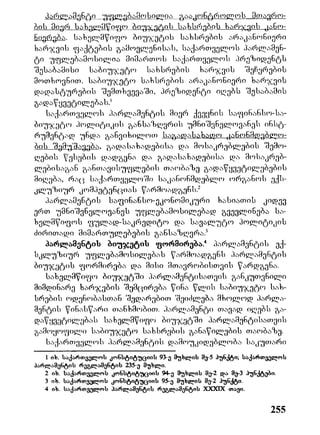 პარლამენტი უფლებამოსილია გააკონტროლოს მთავრო-
ბის მიერ სახელმწიფო ბიუჯეტის სახსრების ხარჯვის კანო-
ნიერება. სახელმწიფო ბიუჯეტის სახსრების არაკანონიერი
ხარჯვის ფაქტების გამოვლენისას, საქართველოს პარლამენ-
ტი უფლებამოსილია მიმართოს საქართველოს პრეზიდენტს
შესაბამისი საბიუჯეტო სახსრების ხარჯვის შეჩერების
მოთხოვნით. საბიუჯეტო სახსრების არაკანონიერი ხარჯვის
დადასტურების შემთხვევაში, პრეზიდენტი იღებს შესაბამის
გადაწყვეტილებას.¹
საქართველოს პარლამენტის მიერ ქვეყნის საფინანსო-სა-
ბიუჯეტო პოლიტიკის განსაზღვრის უმნიშვნელოვანეს ინსტ-
რუმენტად უნდა განვიხილოთ საგადასახადო კანონმდებლო-
ბის შემუშავება. გადასახადებისა და მოსაკრებლების შემო-
ღების წესების დადგენა და გადასახადებისა და მოსაკრებ-
ლებისაგან განთავისუფლების თაობაზე გადაწყვეტილებების
მიღება, რაც საქართველოში საკანონმდებლო ორგანოს ექს-
კლუზიურ კომპეტენციას წარმოადგენს.²
პარლამენტის საფინანსო-ეკონომიკური ხასიათის კიდევ
ერთ უმნიშვნელოვანეს უფლებამოსილებად გვევლინება სა-
ხელმწიფოს ფულად-საკრედიტო და სავალუტო პოლიტიკის
ძირითადი მიმართულებების განსაზღვრა.³
პარლამენტის ბიუჯეტის ფორმირება.⁴ პარლამენტის ექ-
სკლუზიურ უფლებამოსილებას წარმოადგენს პარლამენტის
ბიუჯეტის ფორმირება და მისი მთავრობისთვის წარდგენა.
სახელმწიფო ბიუჯეტში პარლამენტისათვის განკუთვნილი
მიმდინარე ხარჯების შემცირება წინა წლის საბიუჯეტო სახ-
სრების ოდენობასთან შედარებით შეიძლება მხოლოდ პარლა-
მენტის წინასწარი თანხმობით. პარლამენტი თავად იღებს გა-
დაწყვეტილებას სახელმწიფო ბიუჯეტში პარლამენტისათვის
გამოყოფილი საბიუჯეტო სახსრების განაწილების თაობაზე.
საქართველოს პარლამენტის დამოუკიდებლობა საკუთარი
1 იხ. საქართველოს კონსტიტუციის 93-ე მუხლის მე-5 პუნქტი; საქართველოს
პარლამენტის რეგლამენტის 235-ე მუხლი.
2 იხ. საქართველოს კონსტიტუციის 94-ე მუხლის მე-2 და მე-3 პუნქტები.
3 იხ. საქართველოს კონსტიტუციის 95-ე მუხლის მე-2 პუნქტი.
4 იხ. საქართველოს პარლამენტის რეგლამენტის XXXIX თავი.
255